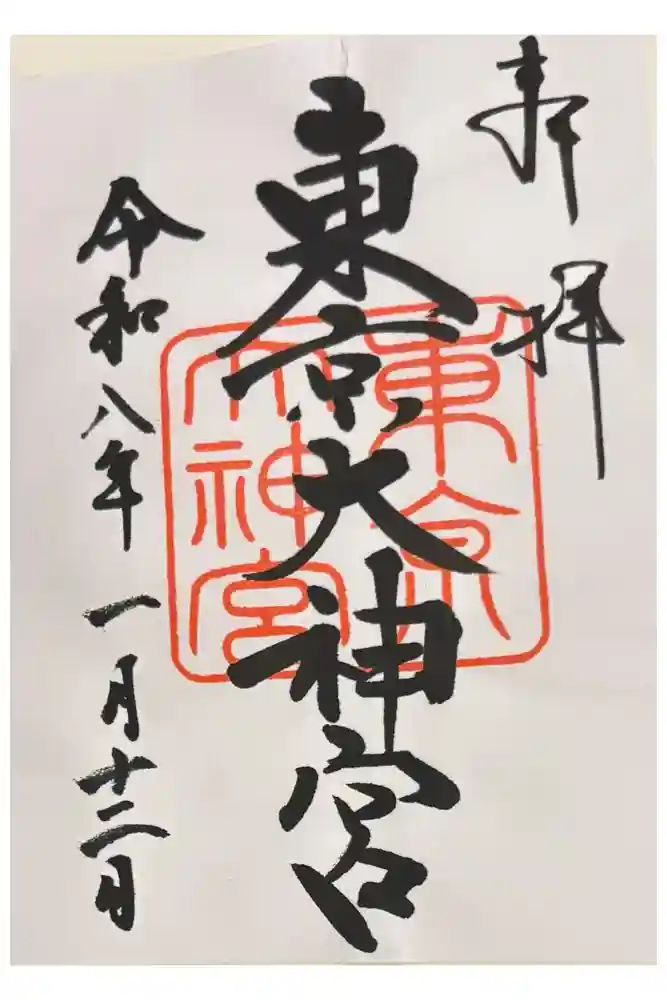 奉拝
東京大神宮
東京
大神宮
令和八年一月十二日